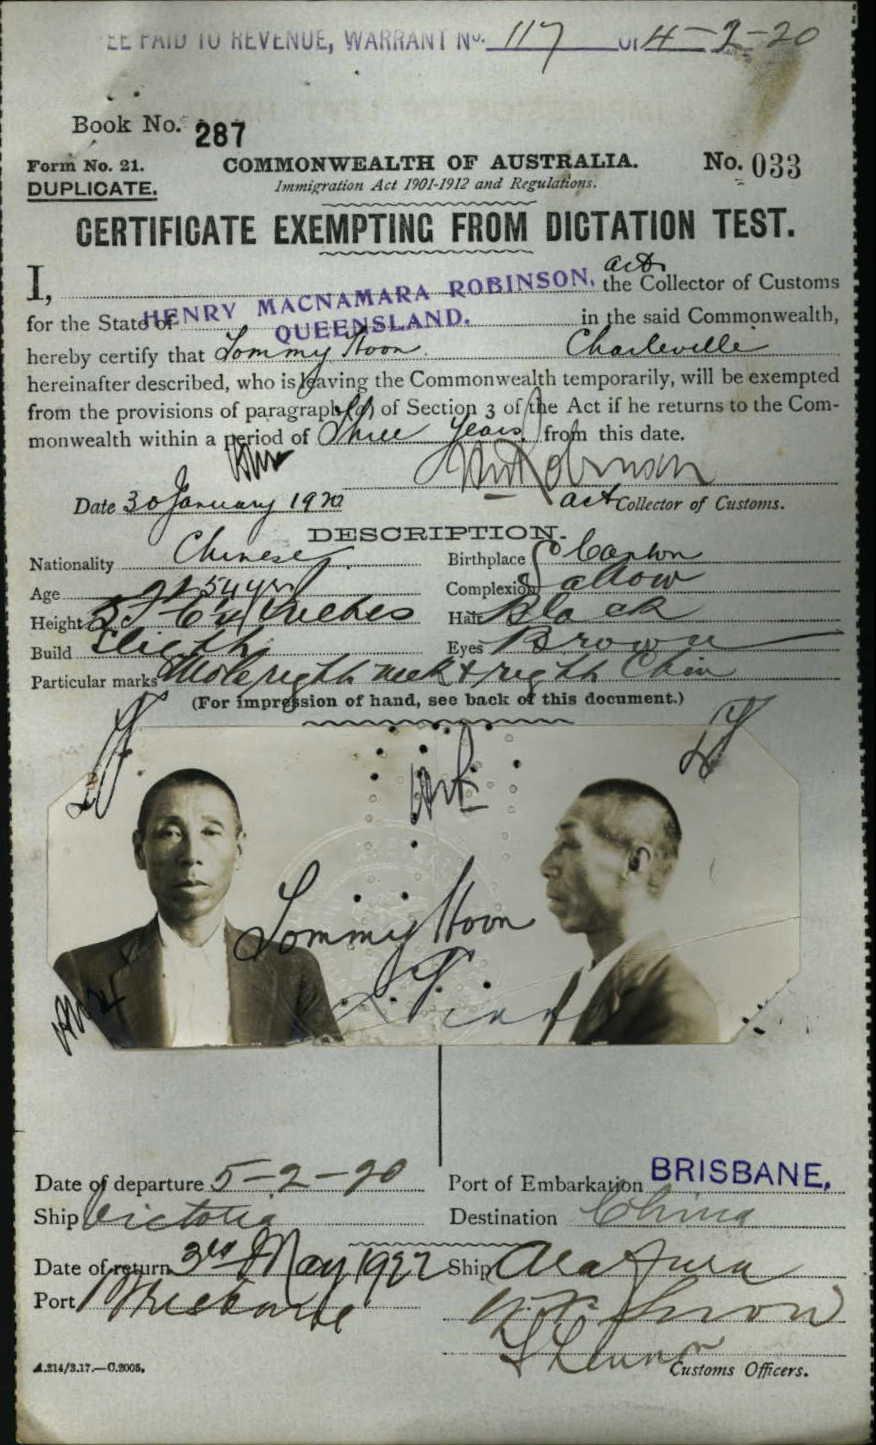 FEE PAID TO REVENUE, WARRANT No. 117 OF 4-2-20
Book No. 287
Form No. 21. COMMONWEALTH OF AUSTRALIA. No. 033
DUPLICATE. Immigration Act 1901-1912 and Regulations.
CERTIFICATE EXEMPTING FROM DICTATION TEST.
I, HENRY MACNAMARA ROBINSON, act the Collector of Customs
for the State of QUEENSLAND. in the said Commonwealth,
hereby certify that Tommy Hoon Charleville
hereinafter described, who is leaving the Commonwealth temporarily, will be exempted
from the provisions of paragraph (a) of Section 3 of the Act if he returns to the Com-
monwealth within a period of Three years from this date.
Robinson
Date 30 January 1920 act Collector of Customs.
DESCRIPTION.
Nationality Chinese Birthplace Canton
Age 54 yrs Complexion Sallow
Height 5 ft 6 inches Hair Black
Build Slight Eyes Brown
Particular marks Mole right neck & right Chin
(For impression of hand, see back of this document.)
Tommy Hoon
Date of departure 5-2-20 Port of Embarkation BRISBANE.
Ship Victoria Destination China
Date of return 3rd May 1922 Ship Arafura
Port Brisbane
Customs Officers.
A.214/3.17.—C.2005.